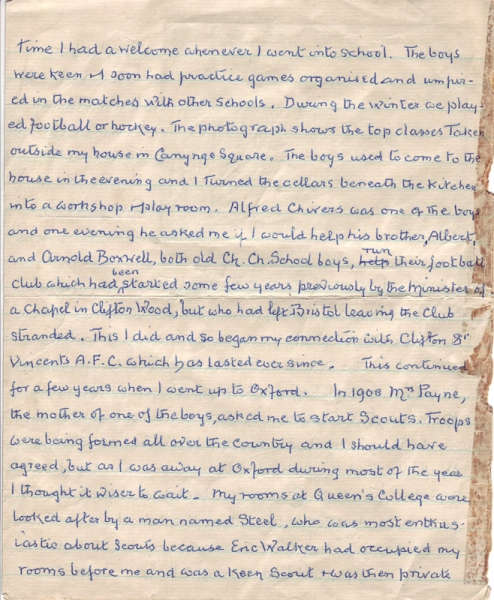 time I had a welcome whenever I went into school. The boys
were keen & I soon had practice games organised and umpir-
ed in the matches with other schools. During the winter we play-
ed football or hockey. The photograph shows the top classes taken
outside my house in Canynge Square. The boys used to come to the
house in the evening and I turned the cellars beneath the kitchen
into a workshop & play room. Alfred Chivers was one of the boys
and one evening he asked me if I would help his brother, Albert,
and Arnold Boxwell, both old Ch. Ch. School boys, help run their football
club which had been started some few years previously by the Minister of
a Chapel in Clifton Wood, but who had left Bristol leaving the Club
stranded. This I did and so began my connection with Clifton St
Vincents A.F.C. which has lasted ever since. This continued
for a few years when I went up to Oxford. In 1908 Mrs Payne,
the mother of one of the boys, asked me to start Scouts. Troops
were being formed all over the country and I should have
agreed, but as I was away at Oxford during most of the year
I thought it wiser to wait. My rooms at Queen's College were
looked after by a man named Steel, who was most enthus-
iastic about Scouts because Eric Walker had occupied my
rooms before me and was a keen Scout & was then private